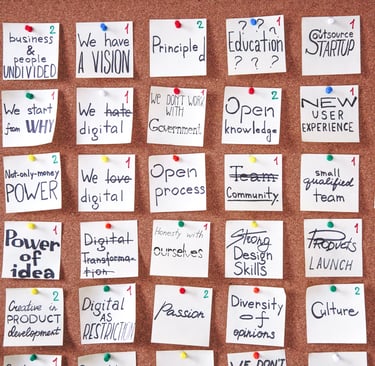 2
business
&
people
UNDIVIDED
1
We have
A VISION
2
Principled
1
? ? ?
Education
? ? ?
1
Outsource
STARTUP
1
We start
from WHY
1
We hate
digital
1
We DON'T WORK
with
Government
2
Open
knowledge
1
NEW
USER
EXPERIENCE
2
Not-only-money
POWER
1
We love
digital
2
Open
process
1
Team
Community
1
small
qualified
team
1
Power
of
idea
1
Digital
Transforma-
tion
1
Honesty with
ourselves
1
Strong
Design
Skills
1
Products
LAUNCH
2
Creative in
PRODUCT
development
1
Digital
AS
RESTRICTION
2
Passion
1
Diversity
of
opinions
2
Culture
WE DON'T